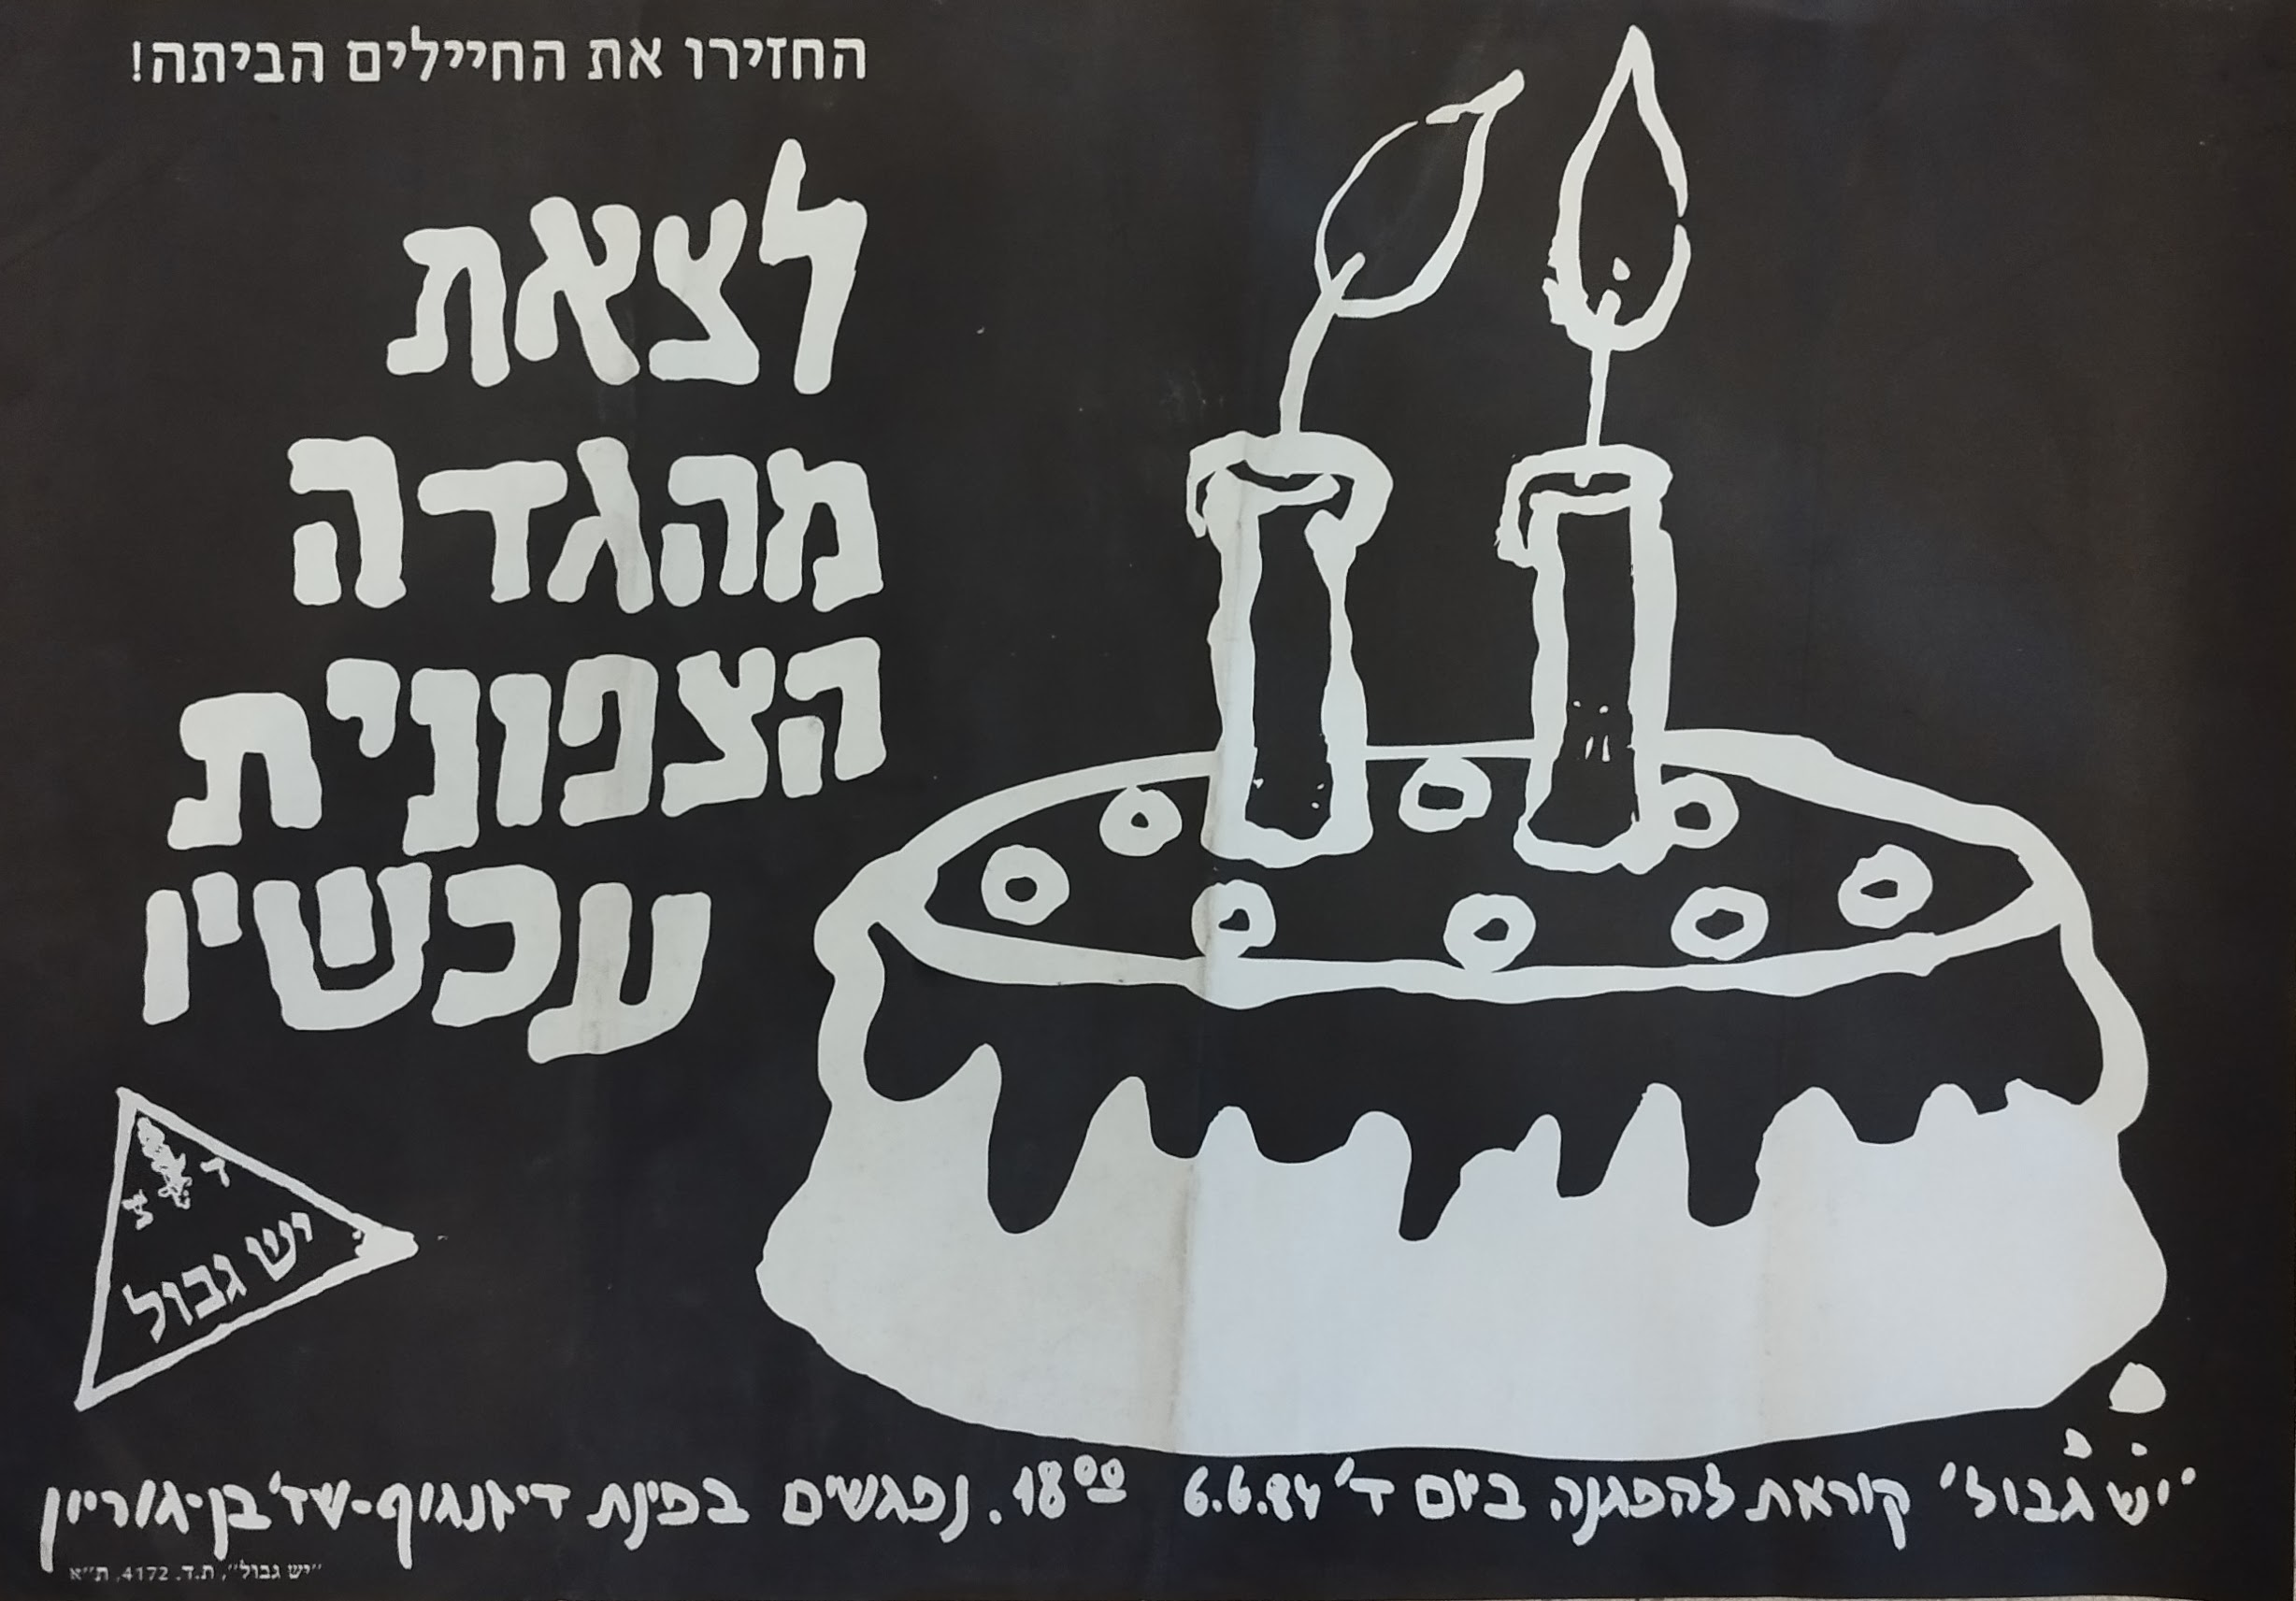 החזירו את החיילים הביתה!
לצאת
מהגדה
הצפונית
עכשיו
יש גבול
"יש גבול" קוראת להפגנה ביום ד' 6.6.84 18⁰⁰. נפגשים בפינת דיזנגוף-שד' בן-גוריון
"יש גבול", ת.ד. 4172, ת"א